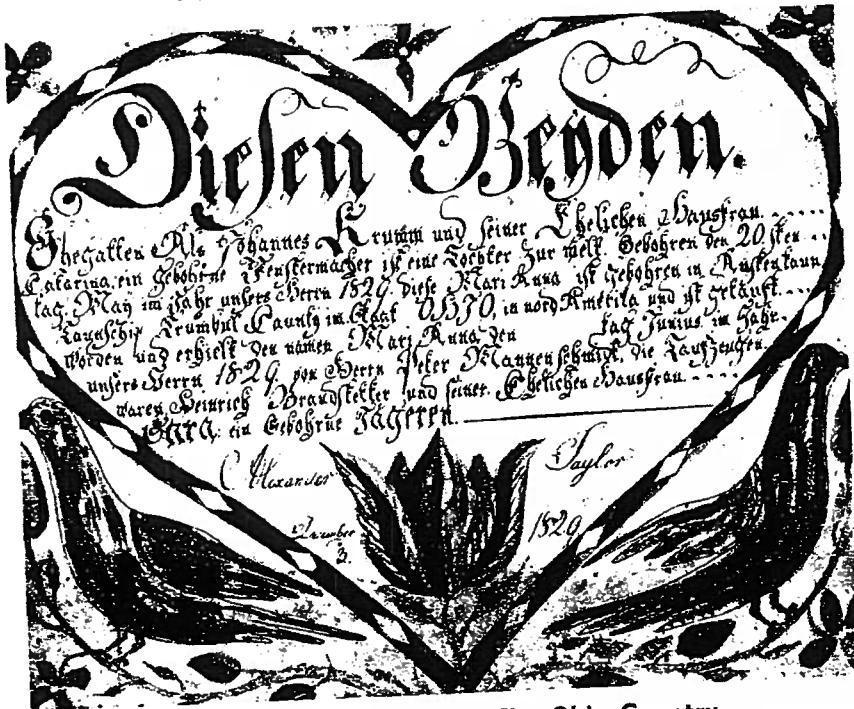 Diesen Beyden.
Ehegatten Als Johannes Krumm und seiner Ehelichen Hausfrau
Catarina, ein Gebohrne Fenstermacher ist eine Tochter zur welt Gebohren den 20sten
tag May im Jahr unsers Herrn 1829 diese Mari Anna ist gebohren in Austentaun
Taunschip Trumbul Caunty im Staat OHIO, in nord Amerika und ist getauft
worden und erhielt den namen Mari Anna den tag Junius im Jahr
unsers Herrn 1829 von Herrn Peter Mannenschmidt, die Taufzeugen
waren Heinrich Brandstetter und seiner Ehelichen Hausfrau
Sara: ein Gebohrne Jägeren.
Alexander Tayler
December 3. 1829
Ohio Country